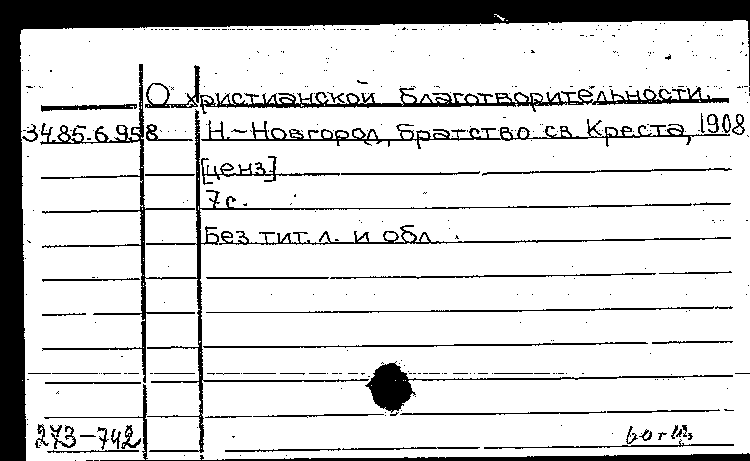 О христианской благотворительности.
34.85.6.958 Н.-Новгород, братство св. Креста, 1908
[ценз.]
7 с.
Без тит. л. и обл.
273-742